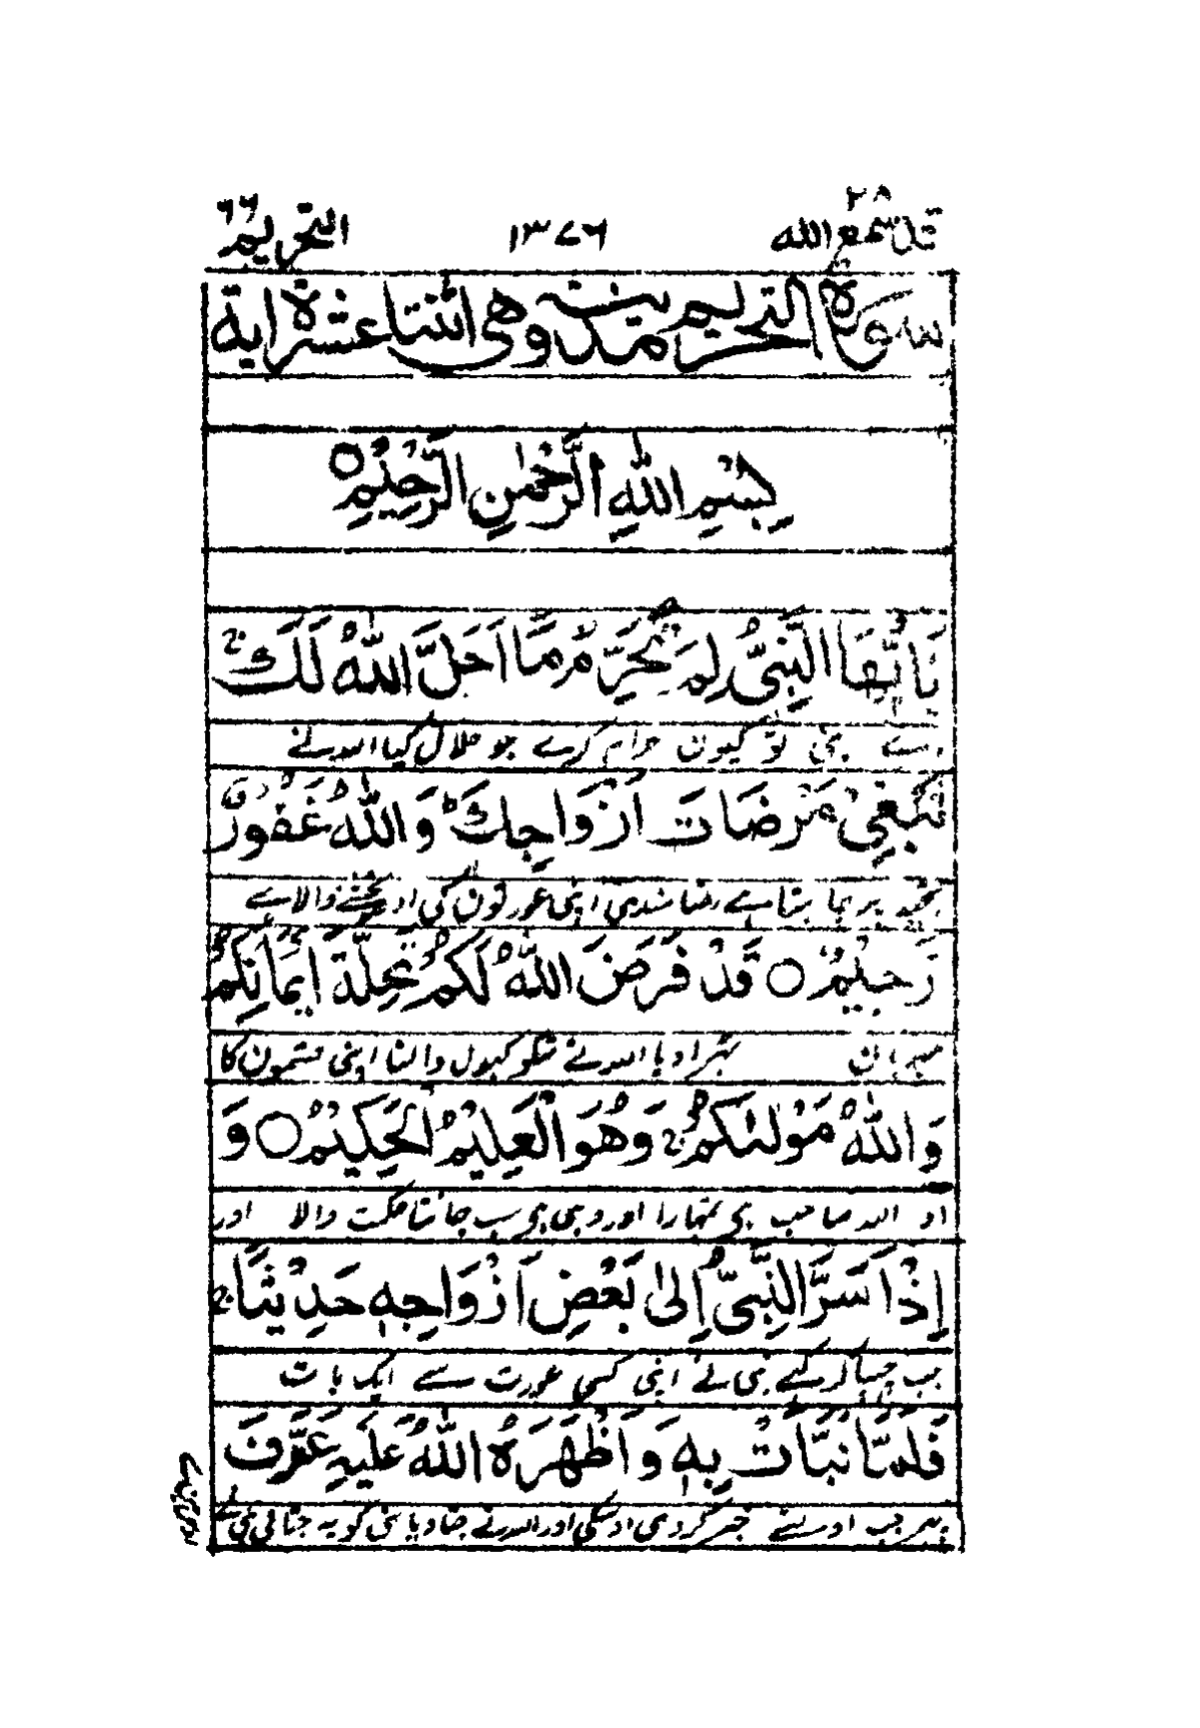 ٢٨
قد سمع الله ١٣٧٦ التحريم ٦٦
سورة التحريم مدنية وهي اثنتا عشرة اية
بِسْمِ اللّٰهِ الرَّحْمٰنِ الرَّحِيْمِ ○
يَا اَيُّهَا النَّبِيُّ لِمَ تُحَرِّمُ مَا اَحَلَّ اللّٰهُ لَكَ ۚ
اے نبی تو کیون حرام کرے جو حلال کیا اللہ نے
تَبْتَغِيْ مَرْضَاتَ اَزْوَاجِكَ ؕ وَاللّٰهُ غَفُوْرٌ
تجھہ پر چاہتا ہے رضا مندی اپنی عورتون کی اور بخشنے والا ہے
رَحِيْمٌ ○ قَدْ فَرَضَ اللّٰهُ لَكُمْ تَحِلَّةَ اَيْمَانِكُمْ
مہربان ٹھرا دیا اللہ نے تمکو کھول ڈالنا اپنی قسمون کا
وَاللّٰهُ مَوْلٰىكُمْ ۚ وَهُوَ الْعَلِيْمُ الْحَكِيْمُ ○ وَ
اور اللہ صاحب ہی تمہارا اور وہی ہی سب جانتا حکمت والا اور
اِذْ اَسَرَّ النَّبِيُّ اِلٰى بَعْضِ اَزْوَاجِهٖ حَدِيْثًا ۚ
جب چھپا کر کہے نبی نے اپنی کسی عورت سے ایک بات
فَلَمَّا نَبَّاَتْ بِهٖ وَاَظْهَرَهُ اللّٰهُ عَلَيْهِ عَرَّفَ
پھر جب اوسنے خبر کردی اوسکی اور اللہ نے جتا دیا نبی کو یہ جتائی نبی نے